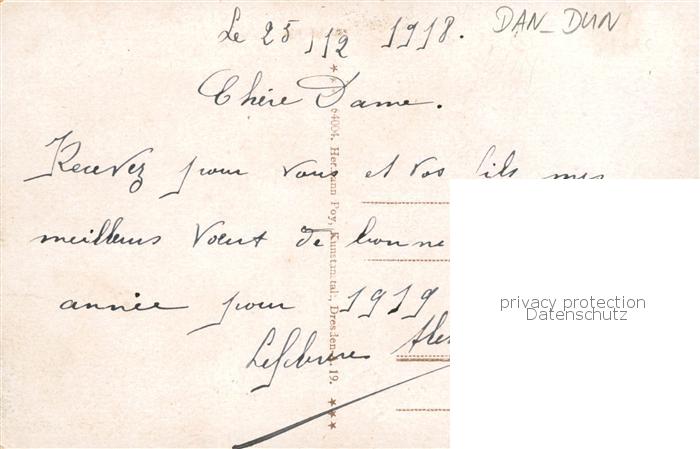 Le 25 12 1918.
DAN-DUN
Chère Dame.
Recevez pour vous et vos fils mes
meilleurs vœux de bonne
année pour 1919
Lefebvre
64004. Hermann Poy, Kunstanstalt, Dresden-A. 19.
privacy protection
Datenschutz